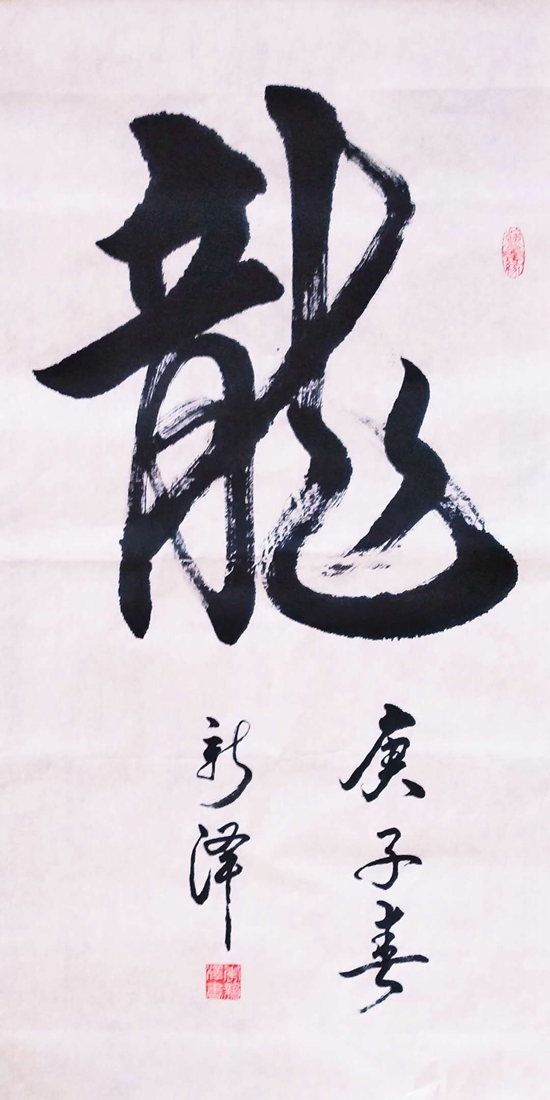 龍
庚子春
新泽